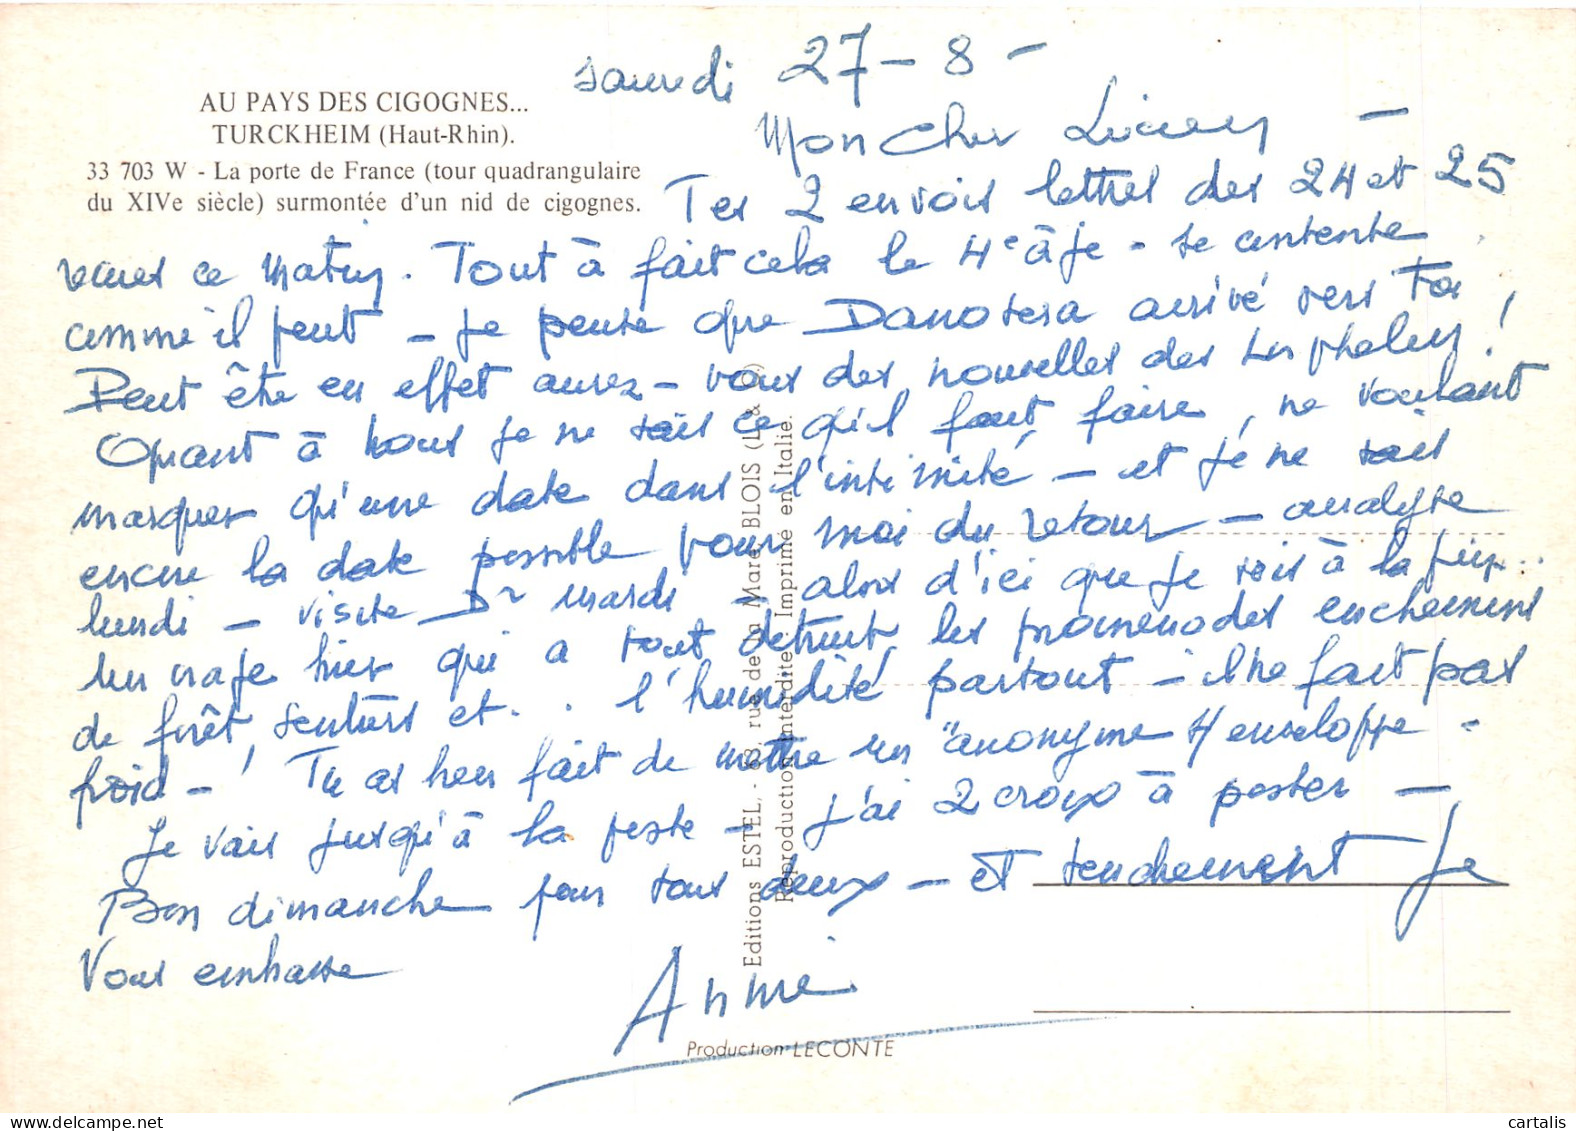 samedi 27-8-
AU PAYS DES CIGOGNES...
TURCKHEIM (Haut-Rhin).
33 703 W - La porte de France (tour quadrangulaire
du XIVe siècle) surmontée d'un nid de cigognes.
Mon Cher Lucien -
Tes 2 envois lettres des 24 et 25
reçues ce matin. Tout à fait cela le 4e âge - se contente
comme il peut - je pense que Danotera arrivé vers Toi
Peut être en effet aurez-vous des nouvelles des !
Quant à nous je ne sais ce qu'il faut faire, ne voulant
marquer qu'une date dans l'intimité - et je ne sais
encore la date possible pour moi du retour - analyse
lundi - visite Dr mardi - alors d'ici que je sois à la
un orage hier qui a tout détruit, les promenades
de forêt, sentiers et.. l'humidité partout - il ne fait pas
froid - ! Tu as bien fait de mettre un "anonyme s/ enveloppe -
Je vais jusqu'à la poste - j'ai 2 à poster -
Bon dimanche pour vous deux - et tendrement Je
Vous embrasse
Annie
Editions ESTEL. - rue de la Mare BLOIS (L. & C.)
Reproduction Interdite Imprimé en Italie.
Production LECONTE
cartalis